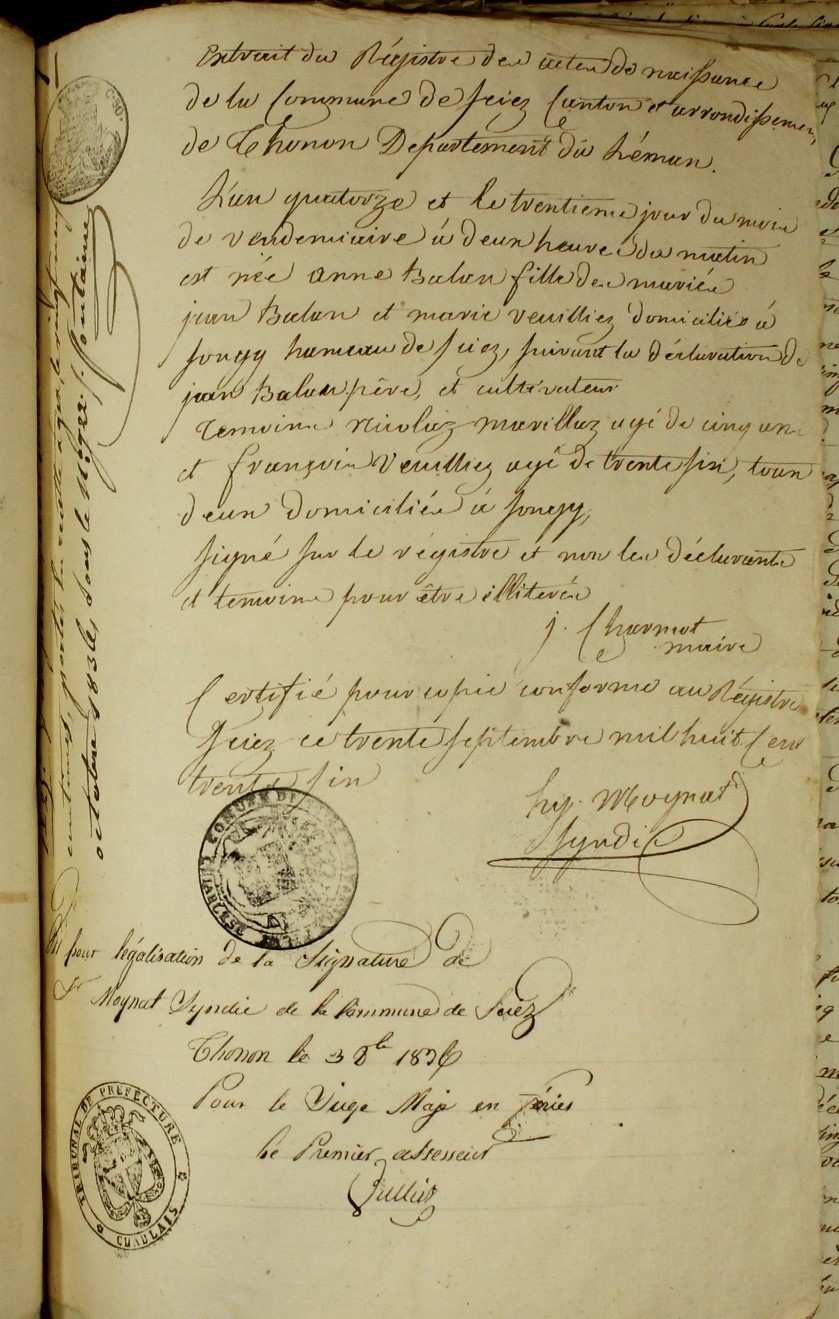 Extrait du Régistre des actes de naissance
de la Commune de Sciez Canton et arrondissement
de Thonon Departement du Léman.
L'an quatorze et le trentieme jour du mois
de vendemiaire à deux heures du matin
est née anne Balan fille des mariés
jean Balan et marie veuilliez domiciliés à
Songy hameau de Sciez, suivant la déclaration de
jean Balan père, et cultivateur
Temoins Nicolaz marillaz agé de cinq ans
et françois Veuilliez agé de trente six, tous
deux domiciliés à Songy,
signé sur le régistre et non les déclarants
et temoins pour être illiterés
j. Charmot
maire
Certifié pour copie conforme au Régistre
Sciez ce trente septembre mil huit Cent
trente six
hy. Moynat
Syndic
Vu pour légalisation de la Signature de
Sr Moynat Syndic de la Commune de Sciez
Thonon le 3 8bre 1836
Pour le Juge Maje en féries
le Premier assesseur
TRIBUNAL DE PREFECTURE
CHABLAIS
octobre 1836, sous le N°